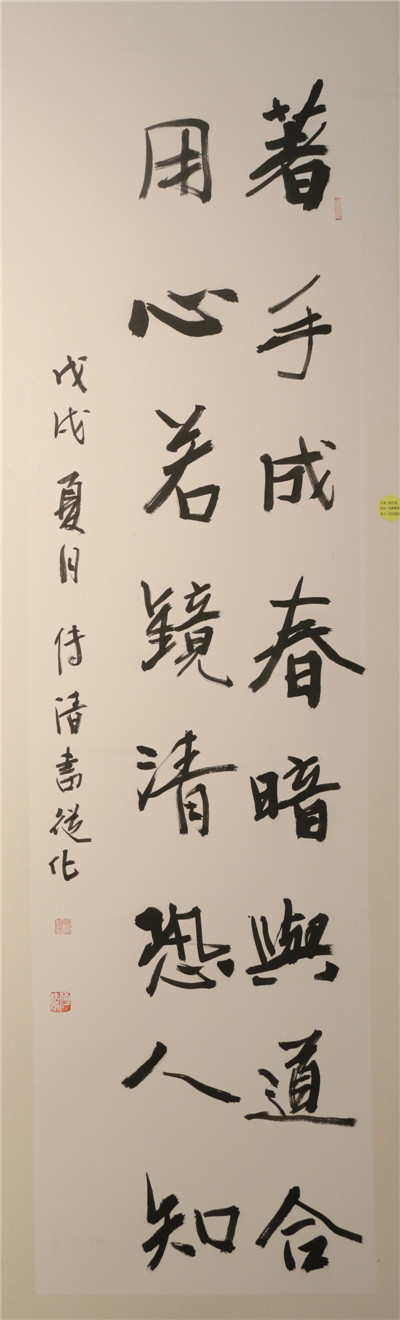 著手成春暗與道合
用心若鏡清恐人知
戊戌夏月傅清書從化